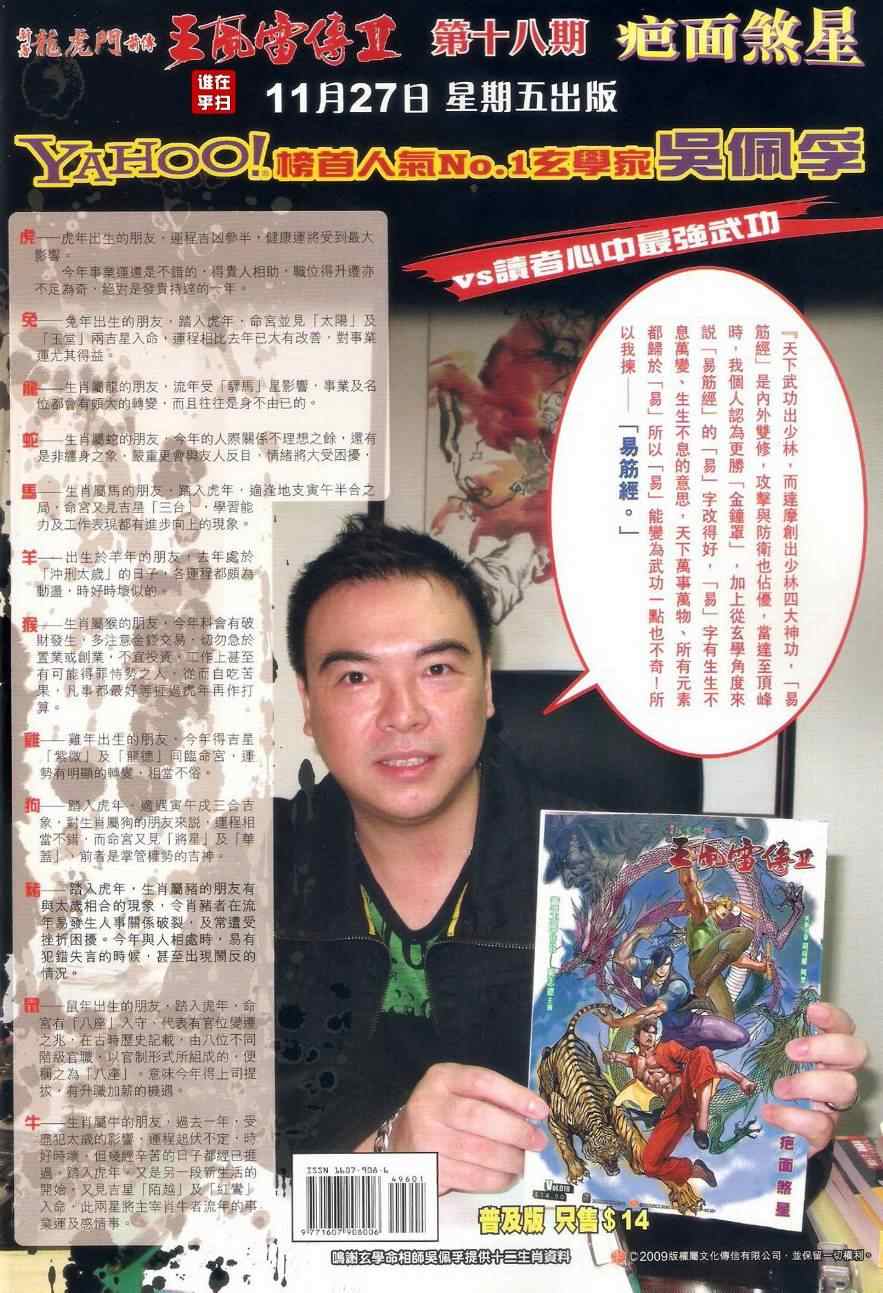 新著龍虎門前傳 王風雷傳II 第十八期 疤面煞星
谁在
乎扫
11月27日 星期五出版
YAHOO!榜首人氣No.1玄學家吳佩孚
vs讀者心中最強武功
虎——虎年出生的朋友，運程吉凶參半，健康運將受到最大
影響。
今年事業運還是不錯的，得貴人相助，職位得升遷亦
不足為奇，絕對是發貴持達的一年。
兔——兔年出生的朋友，踏入虎年，命宮並見「太陽」及
「玉堂」兩吉星入命，運程相比去年已大有改善，對事業
運尤其得益。
龍——生肖屬龍的朋友，流年受「驛馬」星影響，事業及名
位都會有頗大的轉變，而且往往是身不由已的。
蛇——生肖屬蛇的朋友，今年的人際關係不理想之餘，還有
是非纏身之象，嚴重更會與友人反目，情緒將大受困擾，
馬——生肖屬馬的朋友，踏入虎年，適逢地支寅午半合之
局，命宮又見吉星「三台」，學習能
力及工作表現都有進步向上的現象。
羊——出生於羊年的朋友，去年處於
「沖刑太歲」的日子，各運程都頗為
動盪，時好時壞似的。
猴——生肖屬猴的朋友，今年料會有破
財發生，多注意金錢交易，切勿急於
置業或創業，不宜投資，工作上甚至
有可能得罪恃勢之人，從而自吃苦
果，凡事都最好等抵過虎年再作打
算。
雞——雞年出生的朋友，今年得吉星
「紫微」及「龍德」同臨命宮，運
勢有明顯的轉變，相當不俗。
狗——踏入虎年，適遇寅午戌三合吉
象，對生肖屬狗的朋友來説，運程相
當不錯，而命宮又見「將星」及「華
蓋」，前者是掌管權勢的吉神。
豬——踏入虎年，生肖屬豬的朋友有
與太歲相合的現象，令肖豬者在流
年易發生人事關係破裂，及常遭受
挫折困擾。今年與人相處時，易有
犯錯失言的時候，甚至出現鬧反的
情況。
——鼠年出生的朋友，踏入虎年，命
宮有「八座」入守，代表有官位變遷
之兆，在古時歷史記載，由八位不同
階級官職，以官制形式所組成的，便
稱之為「八座」。意味今年得上司提
拔，有升職加薪的機遇。
牛——生肖屬牛的朋友，過去一年，受
應犯太歲的影響，運程起伏不定，時
好時壞，但幾經辛苦的日子都經已捱
過，踏入虎年，又是另一段新生活的
開始，又見吉星「陌越」及「紅鸞」
入命，此兩星將主宰肖牛者流年的事
業運及感情事。
『天下武功出少林，而達摩創出少林四大神功，「易
筋經」是內外雙修，攻擊與防衛也佔優，當達至頂峰
時，我個人認為更勝「金鐘罩」，加上從玄學角度來
説「易筋經」的「易」字改得好，「易」字有生生不
息萬變、生生不息的意思，天下萬事萬物、所有元素
都歸於「易」所以「易」能變為武功一點也不奇！所
以我揀——「易筋經。」
王風雷傳II
疤面煞星
VOL018
$14.00
ISSN 1607-906-6
49601
9 771607 906006
普及版 只售$14
鳴謝玄學命相師吳佩孚提供十二生肖資料
©2009版權屬文化傳信有限公司，並保留一切權利。